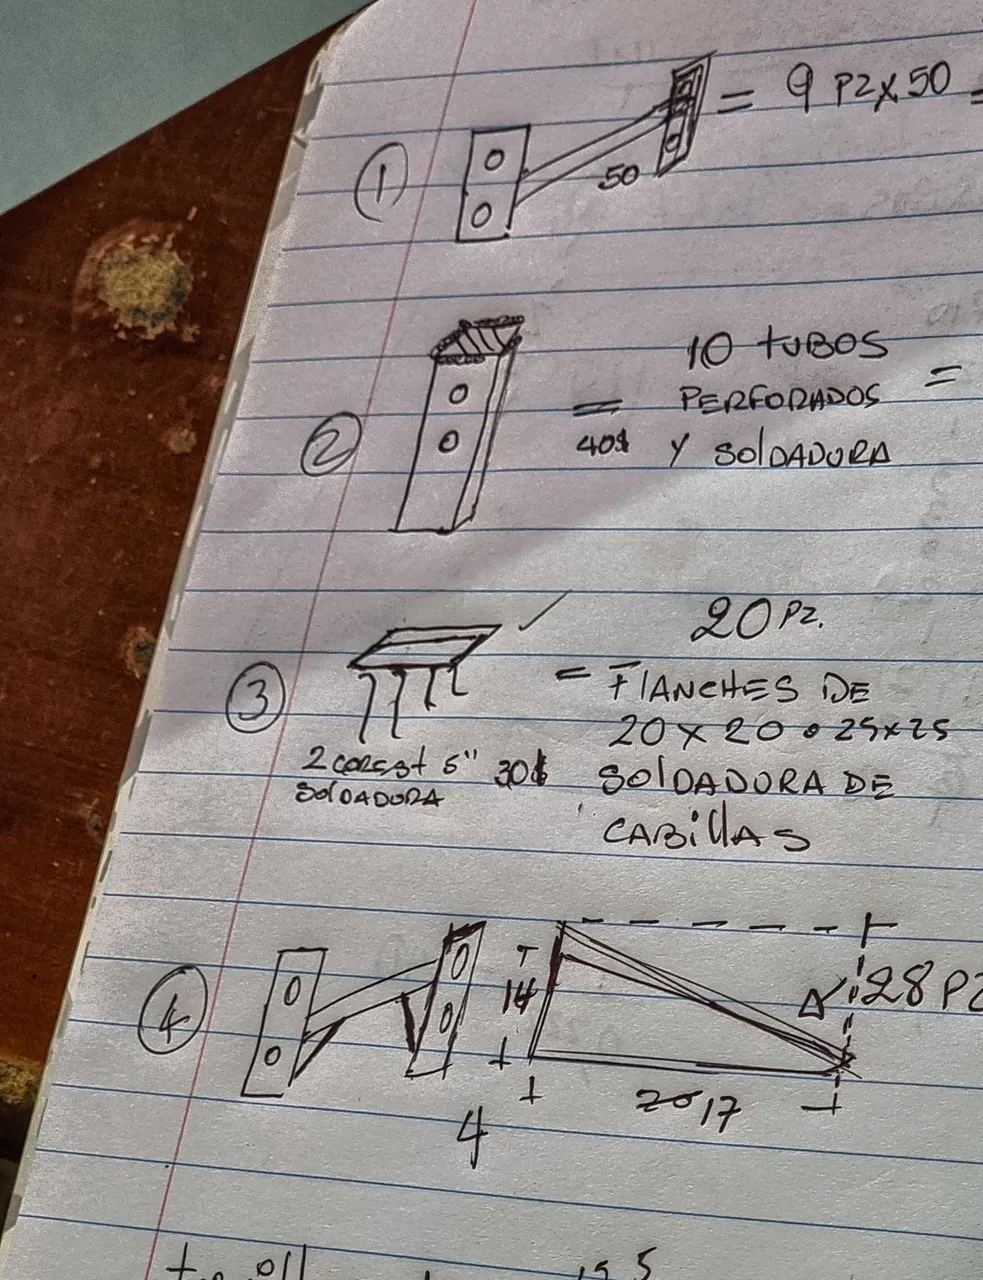 ① = 9 PZ x 50 =
50
② = 10 TUBOS
PERFORADOS =
40$ Y SOLDADURA
③ 20 PZ.
= FLANCHES DE
20 x 20 o 25x25
2 30$ SOLDADURA DE
SOLDADURA
CABILLAS
④ 14 28 PZ
17
4